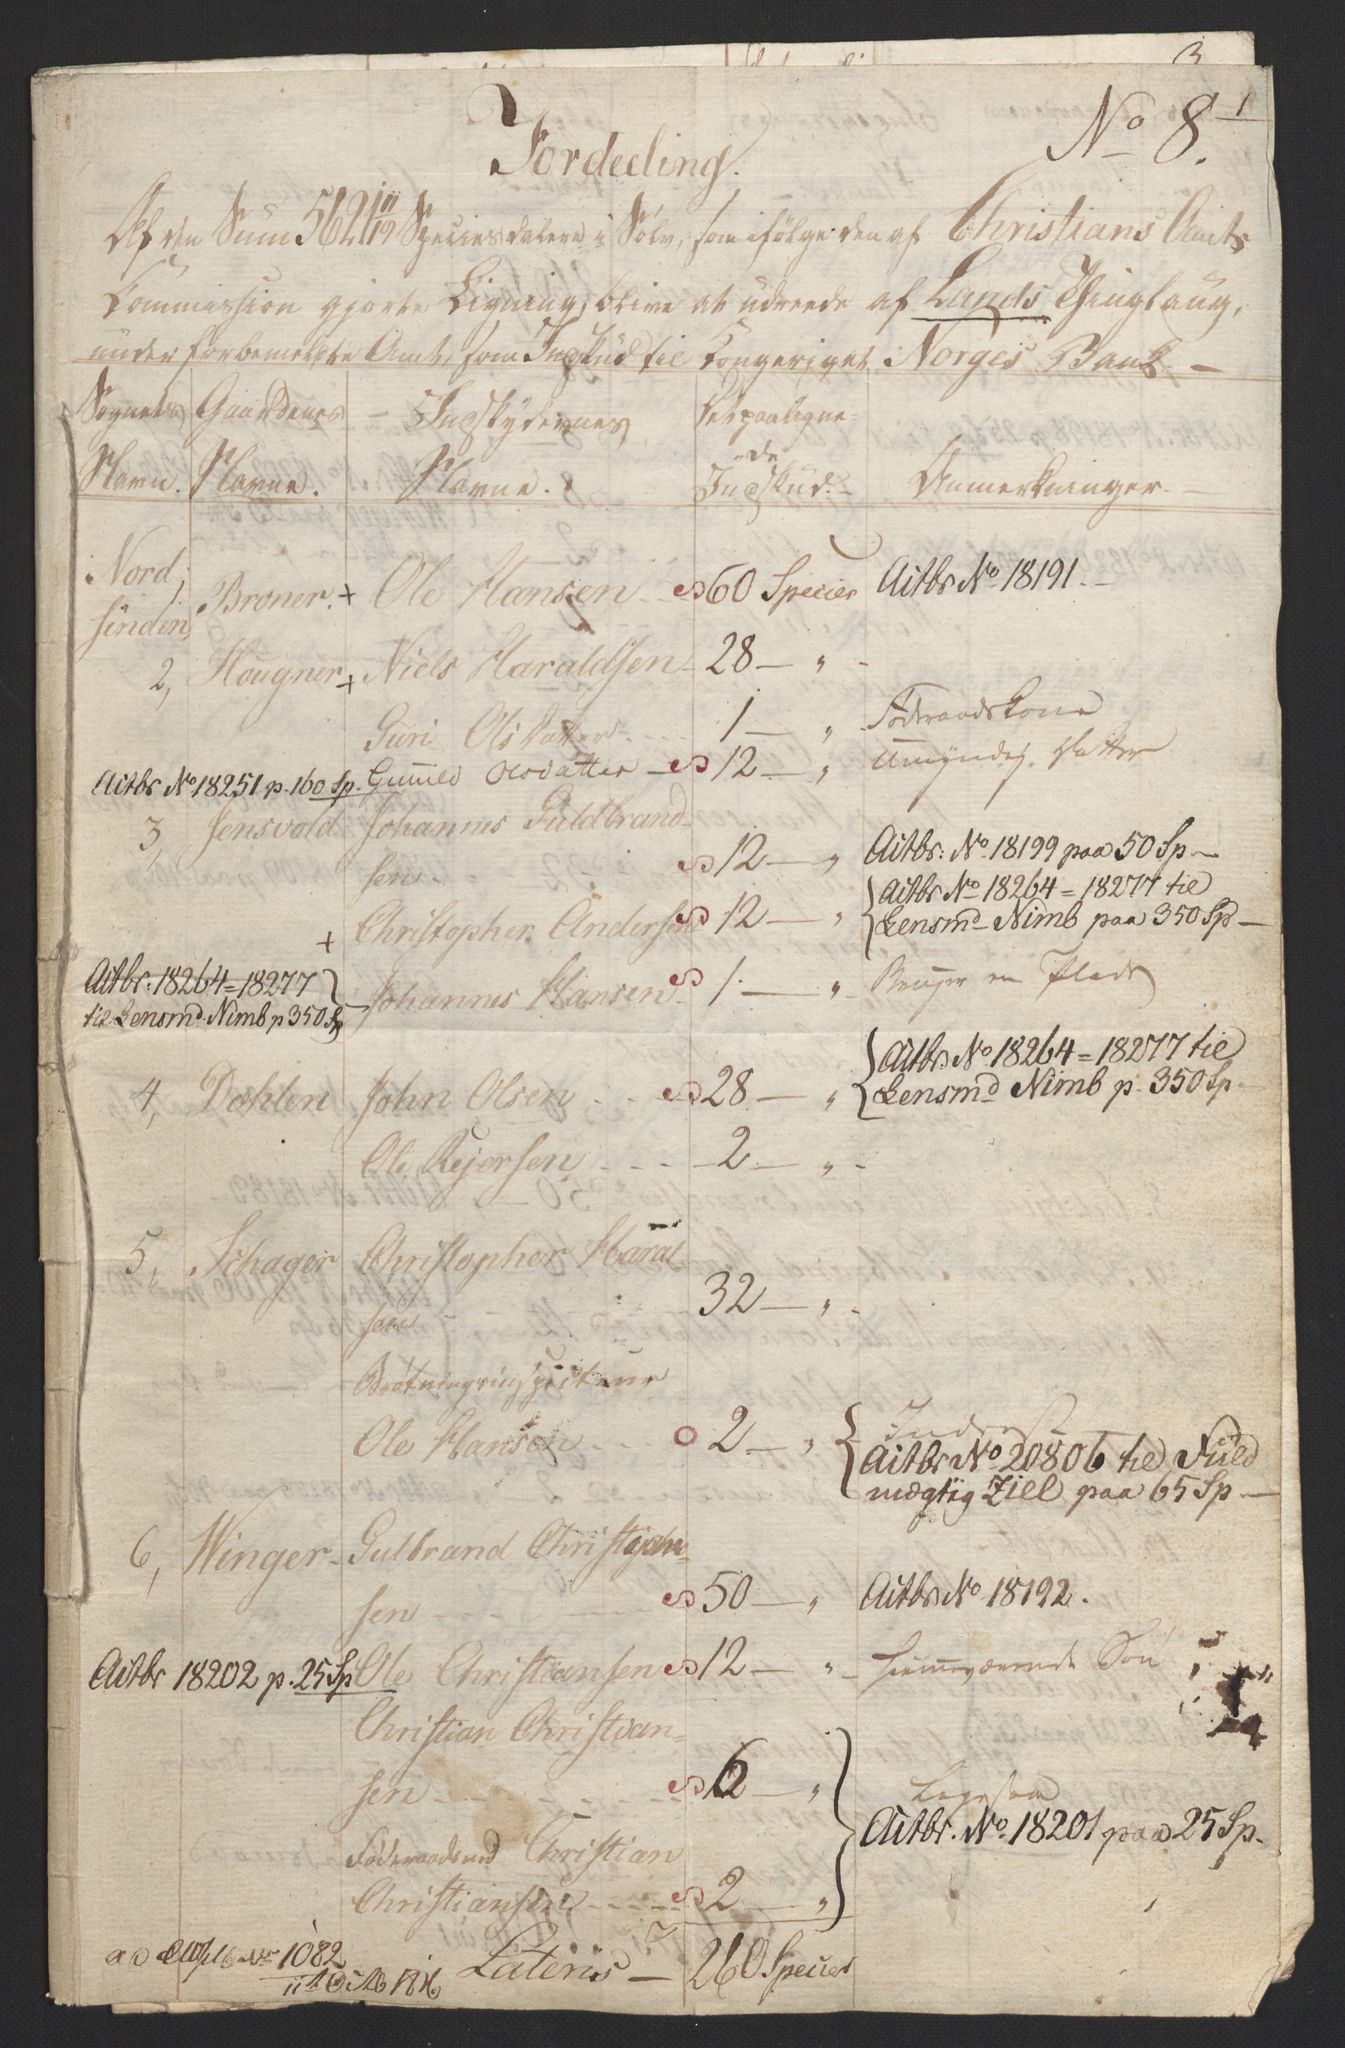 3
1
No 8.
Fordeeling.
Af den Sum 5621 11/19 Speciesdalere i Sölv, som ifölge den af Christians Amts
Commission gjorte Ligning, blive at udreede af Lands Thinglaug,
under forbemeldte Amt, som Indskud til Kongeriget Norges Bank. —
Sognets Gaardenes — Indskydernes Det paaligne-
Navn. Navne. Navne. de Indskud. — Anmerkninger. —
Nordsinden, Broner. + Ole Hansen 60 Species Aitbr No 18191. —
2, Hougner + Niels Haraldsen 28 — " -
Guri Olsdatter 1 — " Föderaadskone
Aitbr No 18251 p. 160 Sp. Gunild Olsdatter — 12 — " Umyndig Datter
3, Jensvold Johannes Guldbrand-
sen 12 — " Aitbr: No 18199 paa 50 Sp —
+ Christopher Andersen 12 — " { Aitbr No 18264 = 18277 til
Lensmd Nimb paa 350 Sp —
Aitbr. 18264 = 18277 }
til Lensmd Nimb p 350 Sp
Johannes Hansen 1 — " Bruger en Plads
4, Dæhlen John Olsen 28 — " { Aitbr No 18264 = 18277 til
Lensmd Nimb p. 350 Sp —
Ole Rejersen 2 — " -
5, Schager Christopher Haral
sen 32 — " -
Brötningsinspecteur
Ole Hansen 2 — " { Inderst
Aitbr No 20806 til Fuld
mægtig Ziel paa 65 Sp —
6, Winger Gulbrand Christian-
sen 50 — " Aitbr No 18192.
Aitbr 18202 p. 25 Sp Ole Christiansen 12 — " - hiemeværende Sön
Christian Christian-
sen 6 — "
Föderaadsmd Christian
Christiansen 2 — " } Aitbr. No 18201 paa 25 Sp.
1082
Lateris — 260 Species